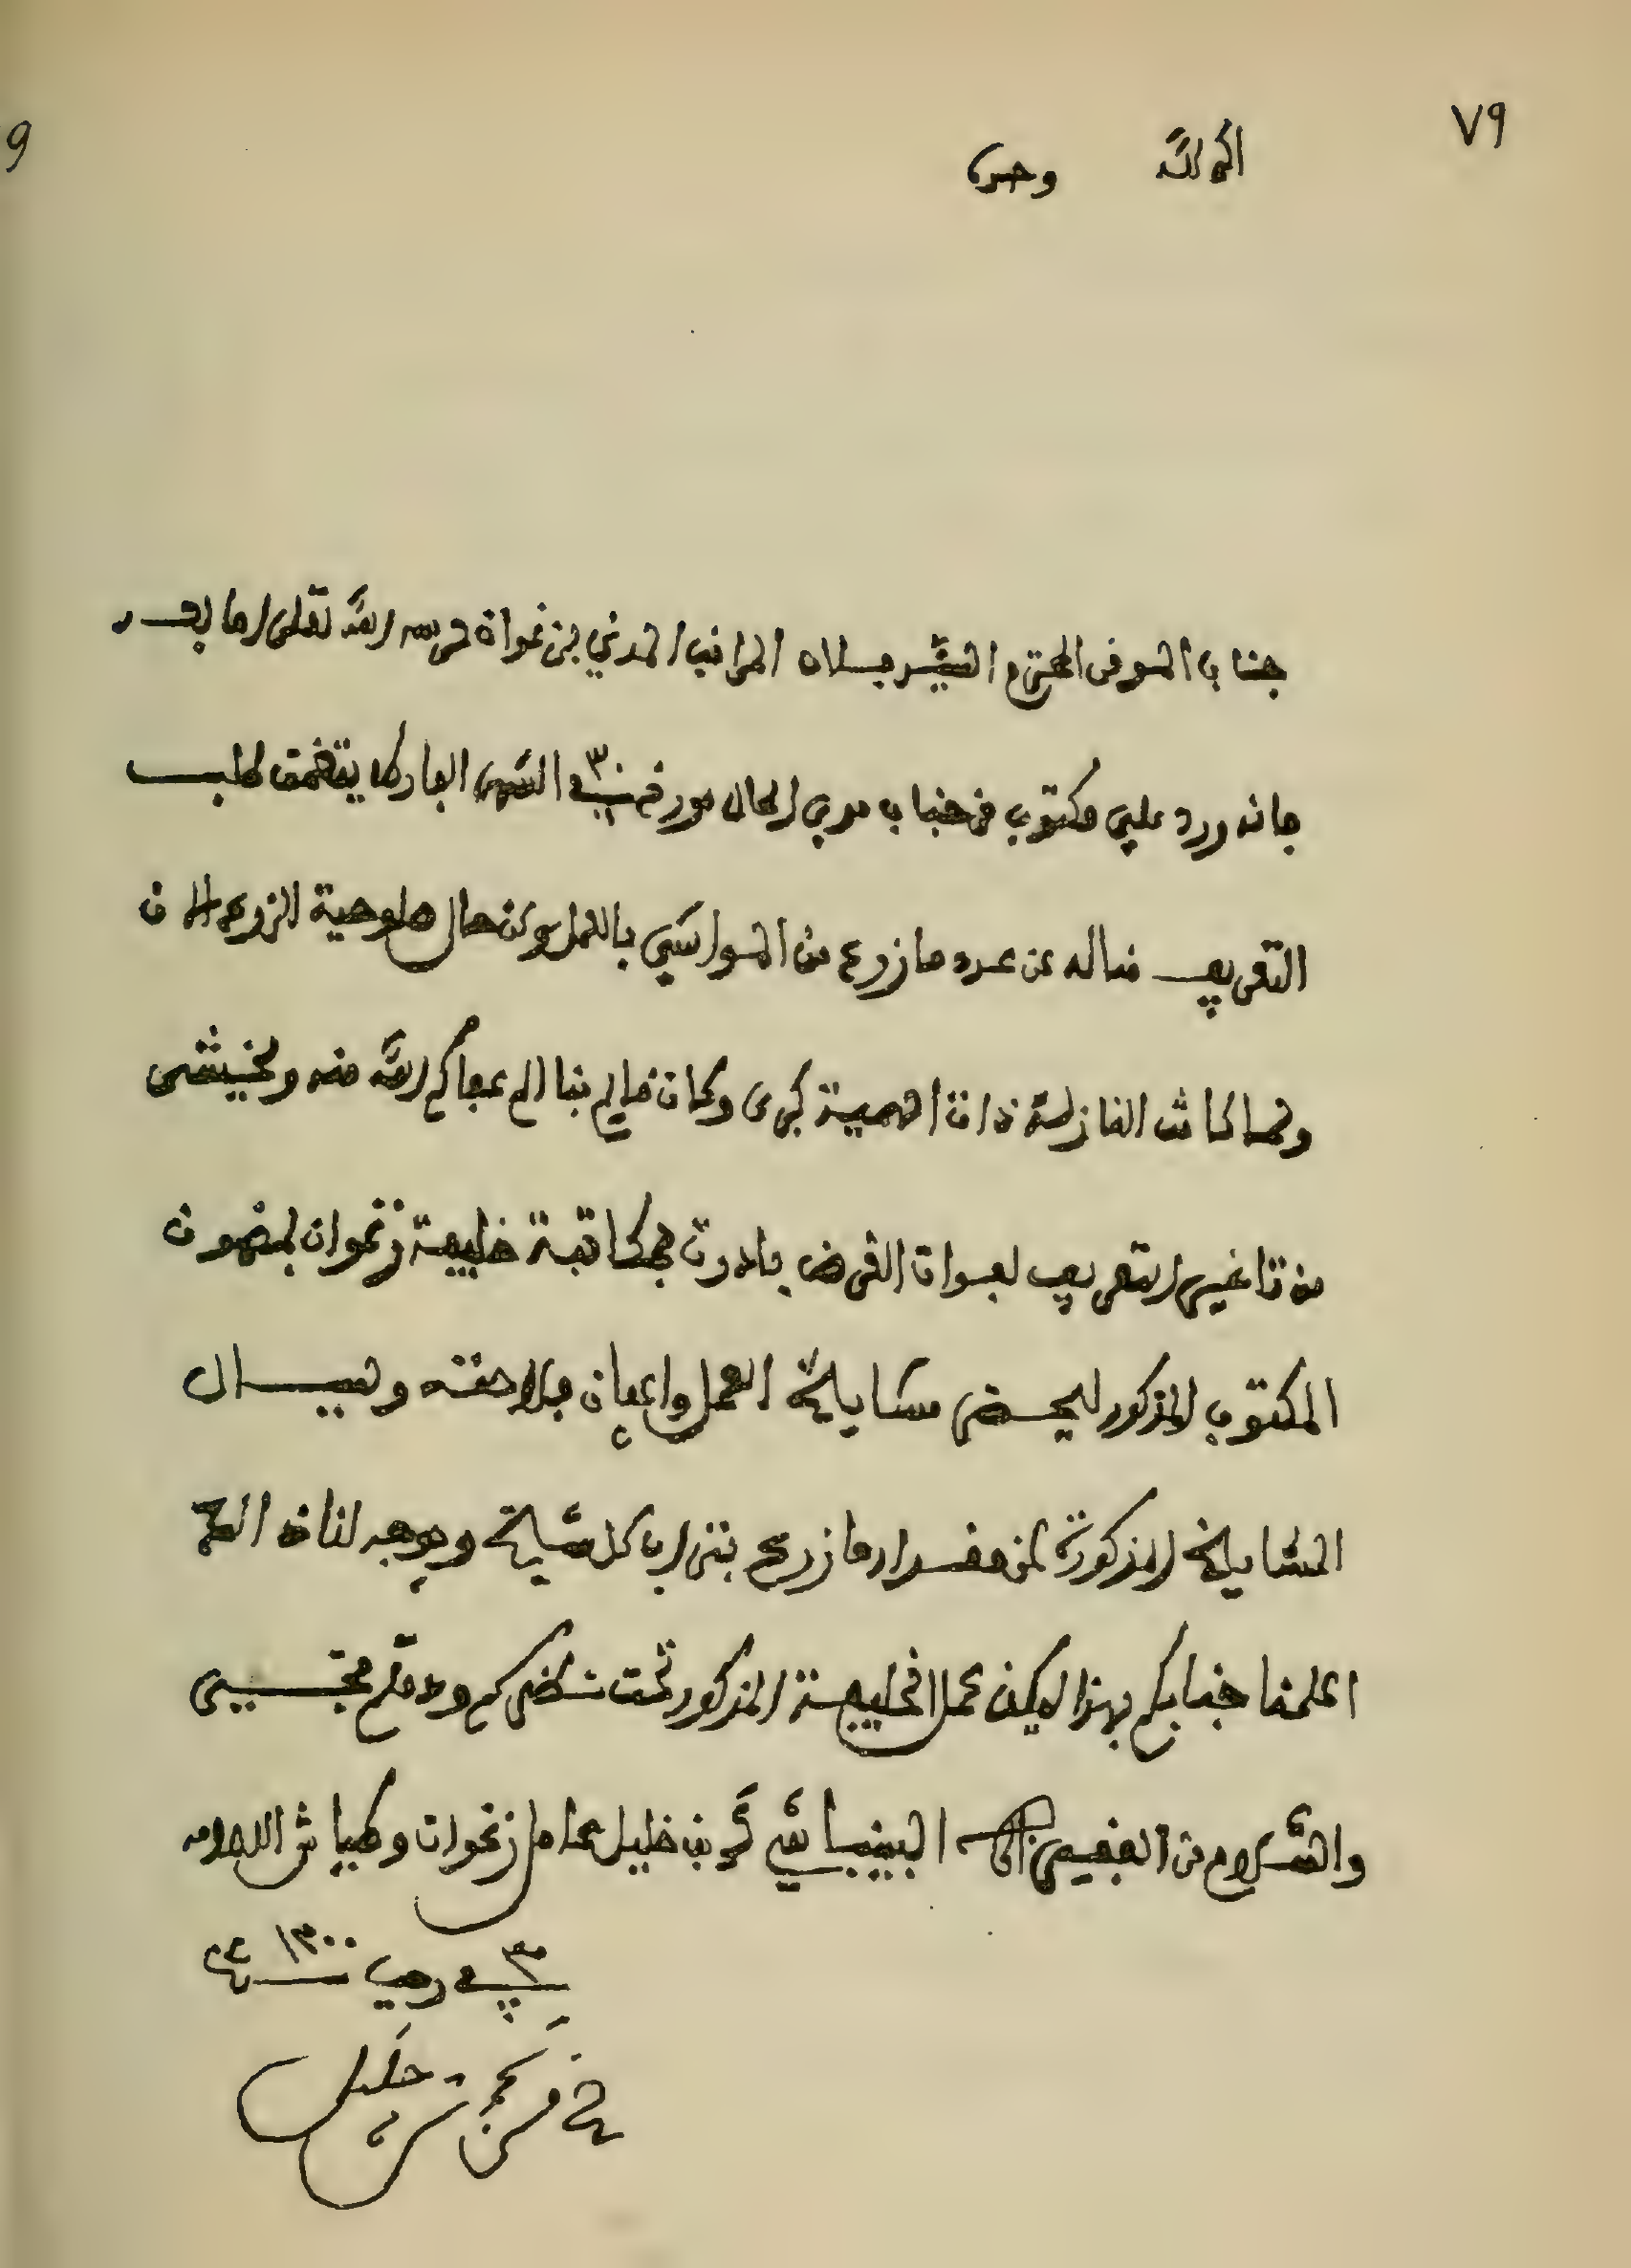 ٧٩
الحمد لله وحده
جناب الموقر المحترم السيد المراقب المدني بزغوان حرسه الله تعالى اما بعد
فانه ورد علي مكتوب من جناب مدير المال مورخ في ٣٠ الشهر الفارط يتضمن طلب
التعريف مناله عن عدد ما زرع من المواشي بالعمل وعن حال صلوحية الزرع الان
ولما كانت النازلة ذات اهمية كبرى وكان بنا الم عفاكم الله منه ونخشى
من تاخير التعريف لفوات الغرض بادرت بمكاتبة خليفة زغوان بمضمون
المكتوب المذكور ليحضر مشايخ العمل واعيان فلاحته ويسال
المشايخ المذكورة عن مقدار ما زرع بتراب كل مشيخة ويوجه لنا
اعلمنا جنابكم بهذا ليكن عمل الخليفة المذكور تحت نظركم ودمتم بخير
والسلام من الفقير الى البينباشي محمد بن خليل عامل زغوان وطبابش الامه
في ٣ رجب سنة ١٣٠٠
صح من محمد بن خليل